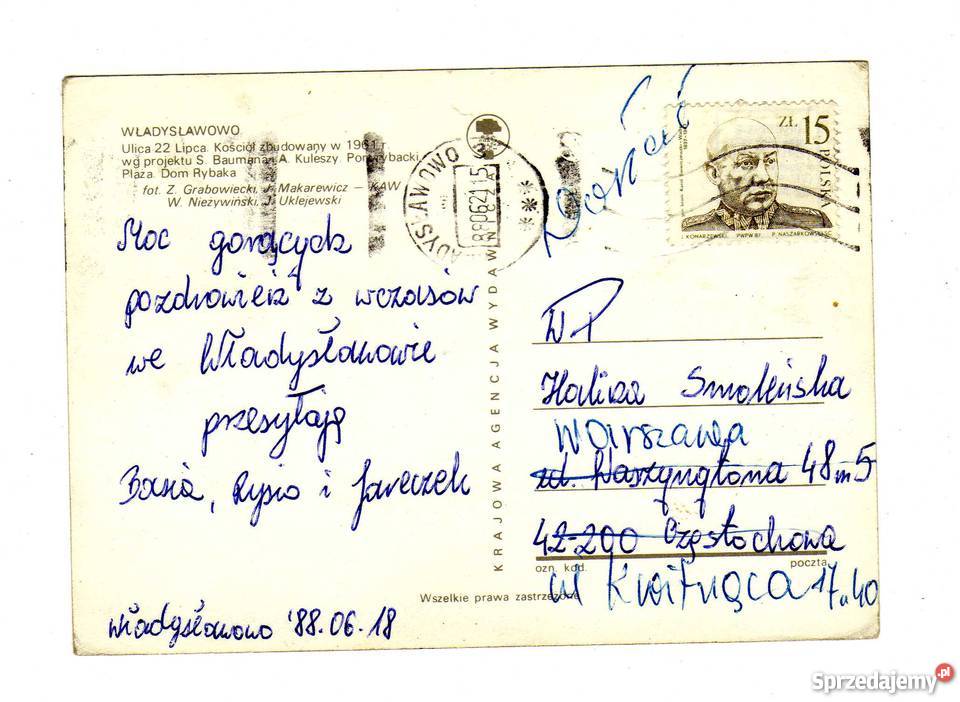 WŁADYSŁAWOWO
Ulica 22 Lipca. Kościół zbudowany w 1961 r.
wg projektu S. Baumana i A. Kuleszy. Port rybacki
Plaża. Dom Rybaka
fot. Z. Grabowiecki, J. Makarewicz — KAW
W. Nieżywiński, J. Uklejewski
Moc gorących
pozdrowień z wczasów
we Władysławowie
przesyłają
Basia, Rysio i Jareczek
Władysławowo '88.06.18
KRAJOWA AGENCJA WYDAWN
WŁADYSŁAWOWO 3
ZŁ 15
POLSKA
J. KONARZEWSKI PWPW 87 P. NASZARKOWSKI SC.
WP
Halina Smoleńska
Warszawa
ul. Waszyngtona 48 m 5
42-200 Częstochowa
ozn. kod. poczta
ul Kwitnąca 17 m 40
Wszelkie prawa zastrzeżone
Sprzedajemy.pl